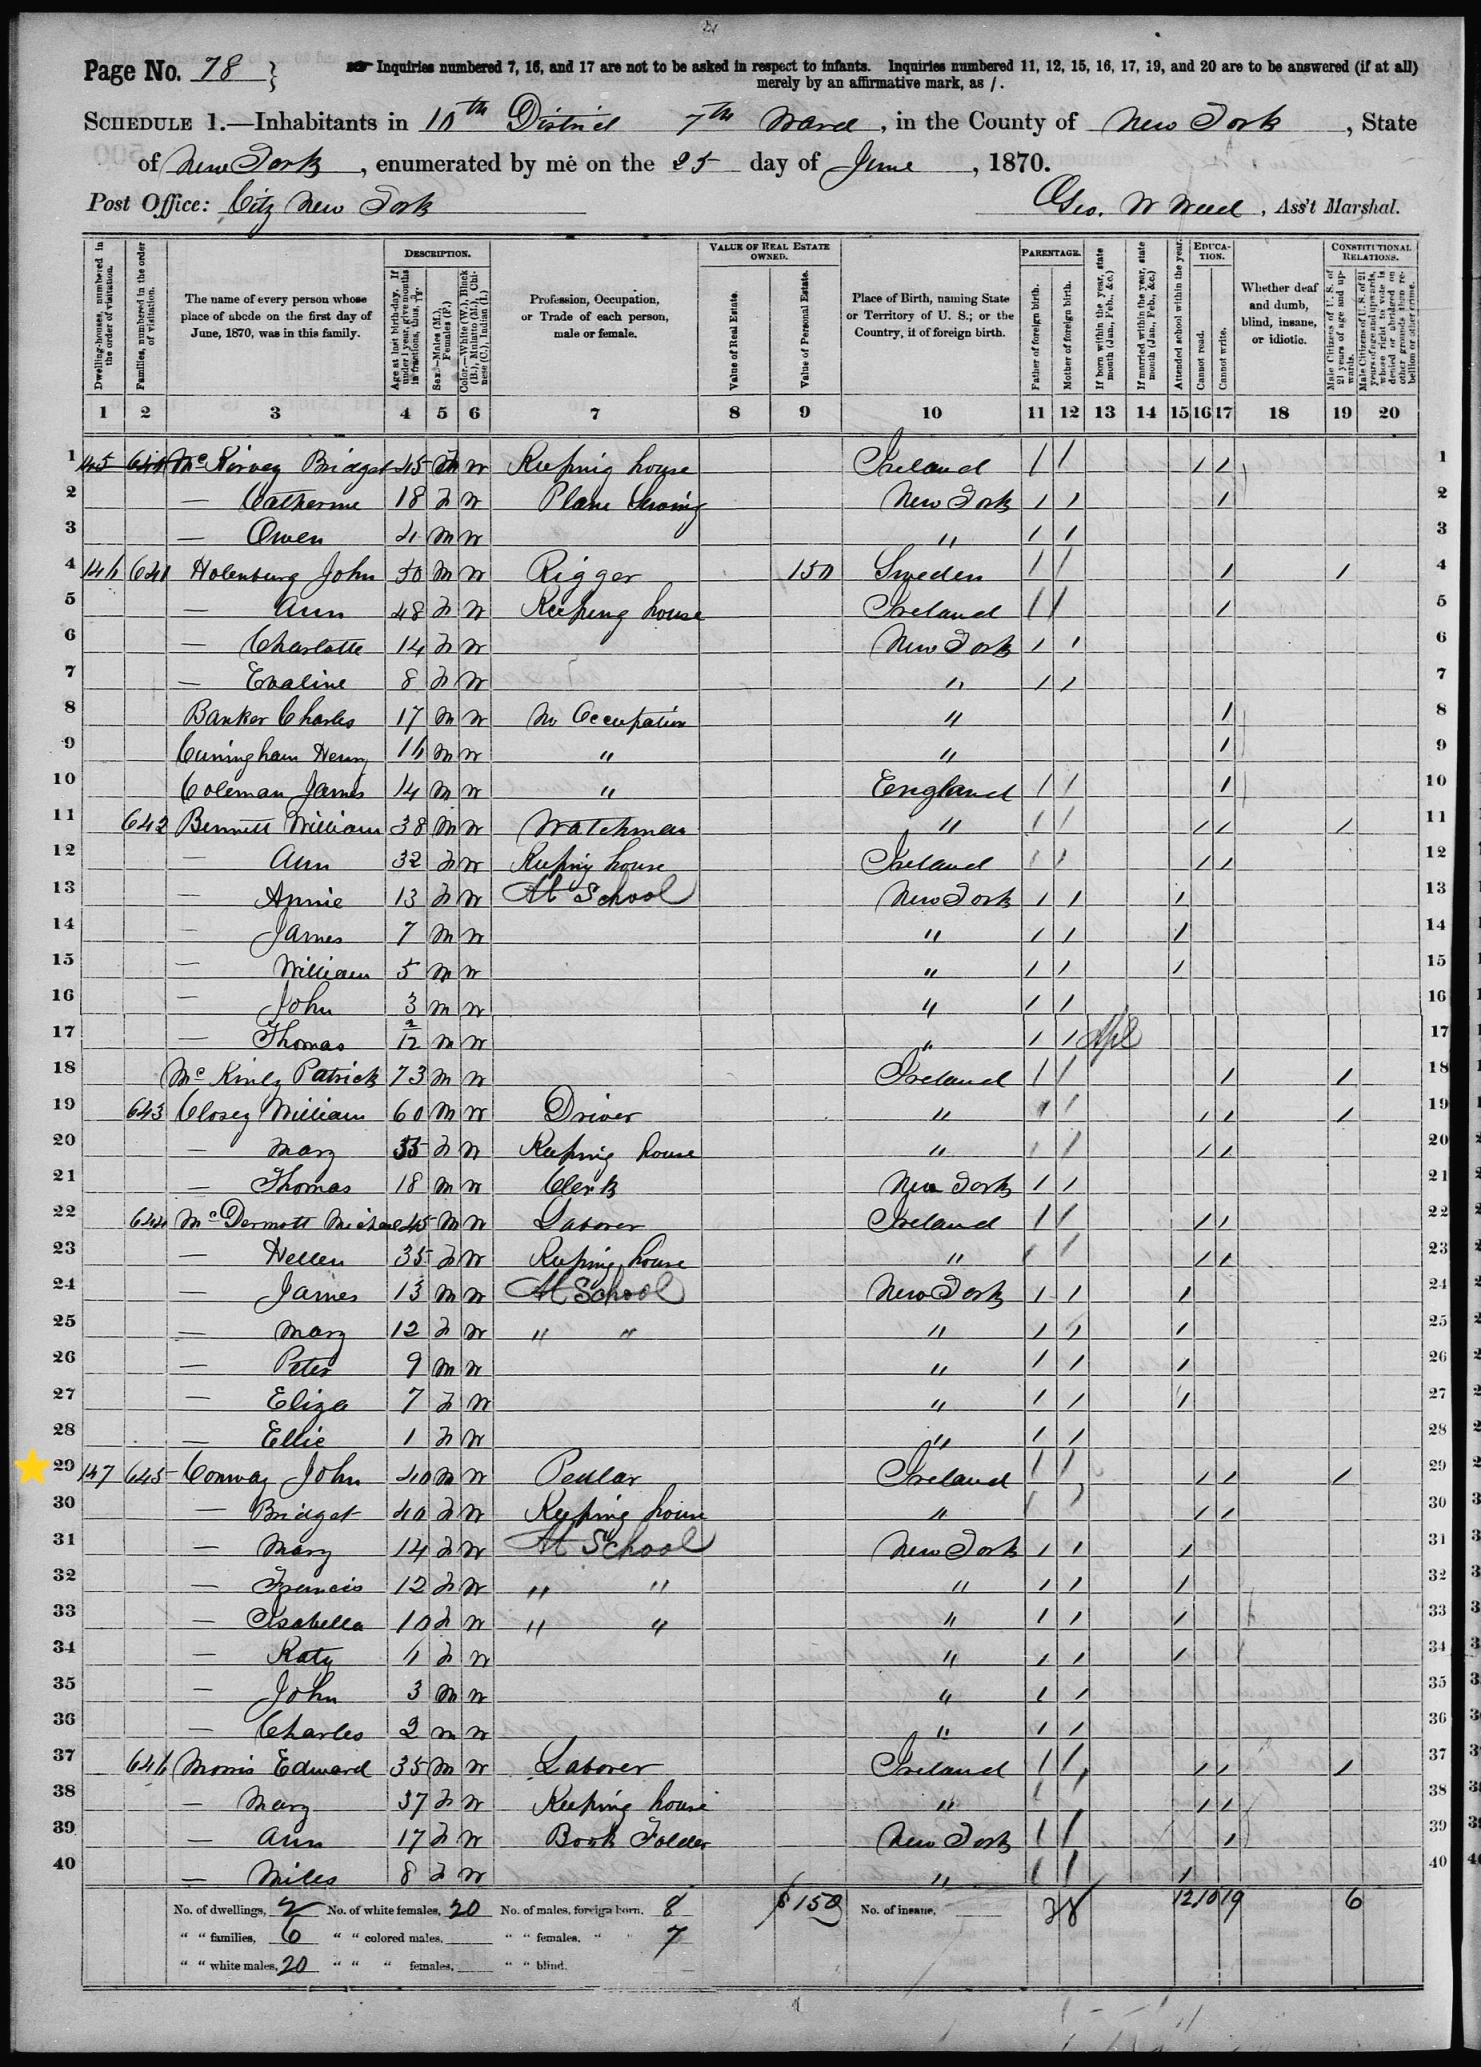 Page No. 78 }
Inquiries numbered 7, 16, and 17 are not to be asked in respect to infants. Inquiries numbered 11, 12, 15, 16, 17, 19, and 20 are to be answered (if at all)
merely by an affirmative mark, as /.
SCHEDULE 1.—Inhabitants in 10th District 7th Ward, in the County of New York, State
of New York, enumerated by me on the 25 day of June, 1870.
Post Office: City New York
Geo. W Weed, Ass't Marshal.
Dwelling-houses, numbered in the order of visitation.
Families, numbered in the order of visitation.
The name of every person whose place of abode on the first day of June, 1870, was in this family.
DESCRIPTION.
Age at last birth-day. If under 1 year, give months in fractions, thus,
Sex.—Males (M.), Females (F.)
Color.—White (W.), Black (B.), Mulatto (M.), Chinese (C.), Indian (I.)
Profession, Occupation, or Trade of each person, male or female.
VALUE OF REAL ESTATE OWNED.
Value of Real Estate.
Value of Personal Estate.
Place of Birth, naming State or Territory of U. S.; or the Country, if of foreign birth.
PARENTAGE.
Father of foreign birth.
Mother of foreign birth.
If born within the year, state month (Jan., Feb., &c.)
If married within the year, state month (Jan., Feb., &c.)
Attended school within the year.
EDUCATION.
Cannot read.
Cannot write.
Whether deaf and dumb, blind, insane, or idiotic.
CONSTITUTIONAL RELATIONS.
Male Citizens of U. S. of 21 years of age and upwards.
Male Citizens of U. S. of 21 years of age and upwards, whose right to vote is denied or abridged on other grounds than rebellion or other crime.
1 2 3 4 5 6 7 8 9 10 11 12 13 14 15 16 17 18 19 20
1 145 Bridget 45 W Keeping house Ireland / / / / 1
2 — Catherine 18 F W Plain Sewing New York / / / 2
3 — Owen 4 M W " / / 3
4 146 641 Holenburg John 50 M W Rigger 150 Sweden / / / / 4
5 — Ann 48 F W Keeping house Ireland / / / 5
6 — Charlotte 14 F W New York / / 6
7 — Evaline 8 F W " / / 7
8 Banker Charles 17 M W No Occupation " / 8
9 Cuningham Henry 16 M W " " / 9
10 Coleman James 14 M W " England / / / 10
11 642 Bennett William 38 M W Watchman " / / / / / 11
12 — Ann 32 F W Keeping house Ireland / / / / 12
13 — Annie 13 F W At School New York / / / 13
14 — James 7 M W " / / / 14
15 — William 5 M W " / / / 15
16 — John 3 M W " / / 16
17 — Thomas 2/12 M W " / / Apl 17
18 Mc Kinly Patrick 73 M W Ireland / / / / 18
19 643 Closey William 60 M W Driver " / / / / / 19
20 — Mary 55 F W Keeping house " / / / / 20
21 — Thomas 18 M W Clerk New York / / 21
22 644 McDermott Michael 45 M W Laborer Ireland / / / / 22
23 — Hellen 35 F W Keeping house " / / / / 23
24 — James 13 M W At School New York / / / 24
25 — Mary 12 F W " " " / / / 25
26 — Peter 9 M W " / / / 26
27 — Eliza 7 F W " / / / 27
28 — Ellie 1 F W " / / 28
29 147 645 Conway John 40 M W Pedlar Ireland / / / / / 29
30 — Bridget 40 F W Keeping house " / / / / 30
31 — Mary 14 F W At School New York / / / 31
32 — Francis 12 F W " " " / / / 32
33 — Isabella 10 F W " " " / / / 33
34 — Katy 6 F W " / / / 34
35 — John 3 M W " / / 35
36 — Charles 2 M W " / / 36
37 646 Morris Edward 35 M W Laborer Ireland / / / / / 37
38 — Mary 37 F W Keeping house " / / / / 38
39 — Ann 17 F W Book Folder New York / / / 39
40 — Miles 8 F W " / / / 40
No. of dwellings, 2 No. of white females, 20 No. of males, foreign born, 8 $150 No. of insane, 38 12 10 19 6
" " families, 6 " " colored males, " " females, " " 7
" " white males, 20 " " " females, " " blind.